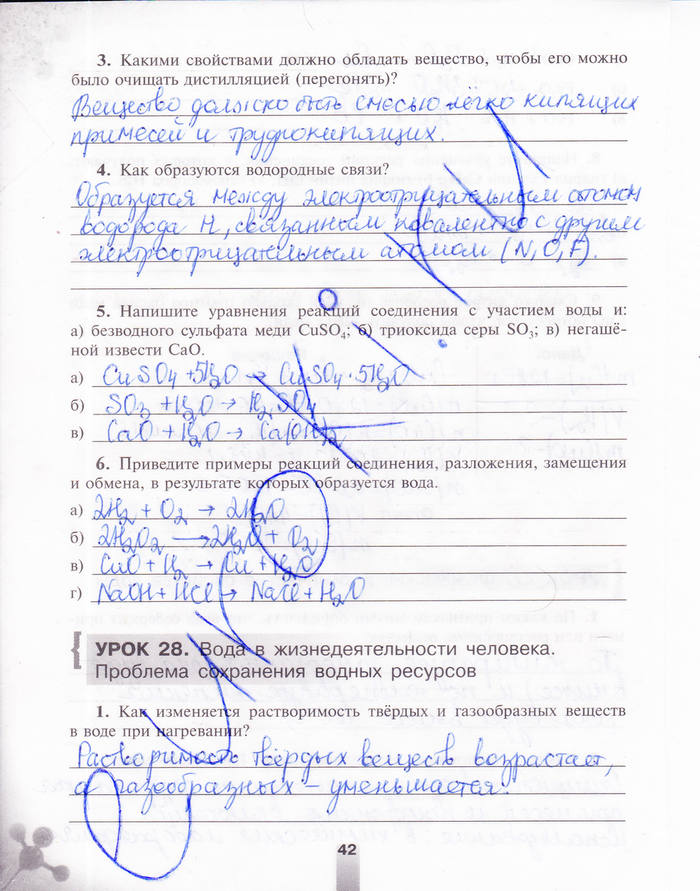 3. Какими свойствами должно обладать вещество, чтобы его можно
было очищать дистилляцией (перегонять)?
Вещество должно быть смесью легко кипящих
примесей и труднокипящих.
4. Как образуются водородные связи?
Образуется между электроотрицательным атомом
водорода H, связанным ковалентно с другим
электроотрицательным атомом (N, O, F).
5. Напишите уравнения реакций соединения с участием воды и:
а) безводного сульфата меди CuSO₄; б) триоксида серы SO₃; в) негашё-
ной извести CaO.
а) CuSO₄ + 5H₂O → CuSO₄ · 5H₂O
б) SO₃ + H₂O → H₂SO₄
в) CaO + H₂O → Ca(OH)₂
6. Приведите примеры реакций соединения, разложения, замещения
и обмена, в результате которых образуется вода.
а) 2H₂ + O₂ → 2H₂O
б) 2H₂O₂ → 2H₂O + O₂
в) CuO + H₂ → Cu + H₂O
г) NaOH + HCl → NaCl + H₂O
УРОК 28. Вода в жизнедеятельности человека.
Проблема сохранения водных ресурсов
1. Как изменяется растворимость твёрдых и газообразных веществ
в воде при нагревании?
Растворимость твёрдых веществ возрастает,
а газообразных – уменьшается.
42